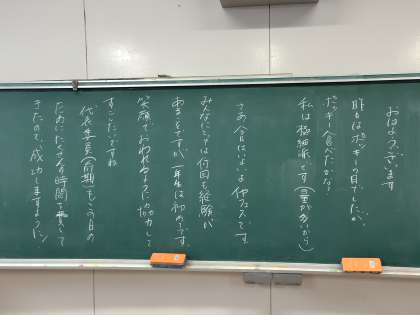 おはようございます
昨日はポッキーの日でしたが、
ポッキー食べたかな?
私は極細派です(量が多いから)
さあ今日はいよいよ仲フェスです。
みんなにとっては何回も経験が
あることですが、一年生は初めてです。
笑顔でおわれるように協力して
すごしたいですね
代表委員(前期)もこの日の
ためにたくさん時間を費して
きたので、成功しますように!